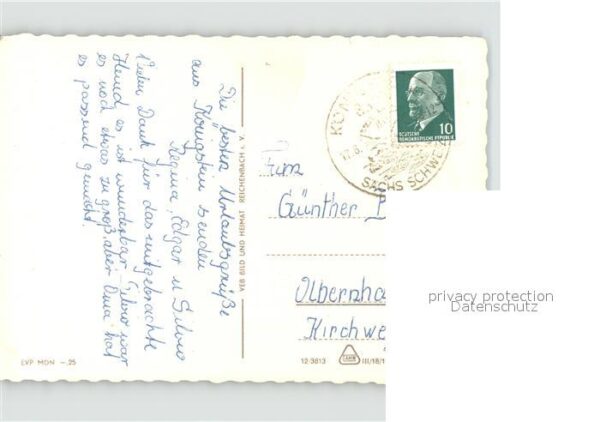 Die besten Urlaubsgrüße
aus Königstein senden
Regina, Edgar u. Silvio
Vielen Dank für das mitgebrachte
Hemd es ist wunderbar. Silvio war
es noch etwas zu groß, aber Oma hat
es passend gemacht.
EVP MDN -.25
VEB BILD UND HEIMAT REICHENBACH i. V.
KÖN
SÄCHS SCHWEI
DEUTSCHE
DEMOKRATISCHE REPUBLIK
10
Fam
Günther
Olbernha
Kirchwe
12-3613
III/18/1
privacy protection
Datenschutz